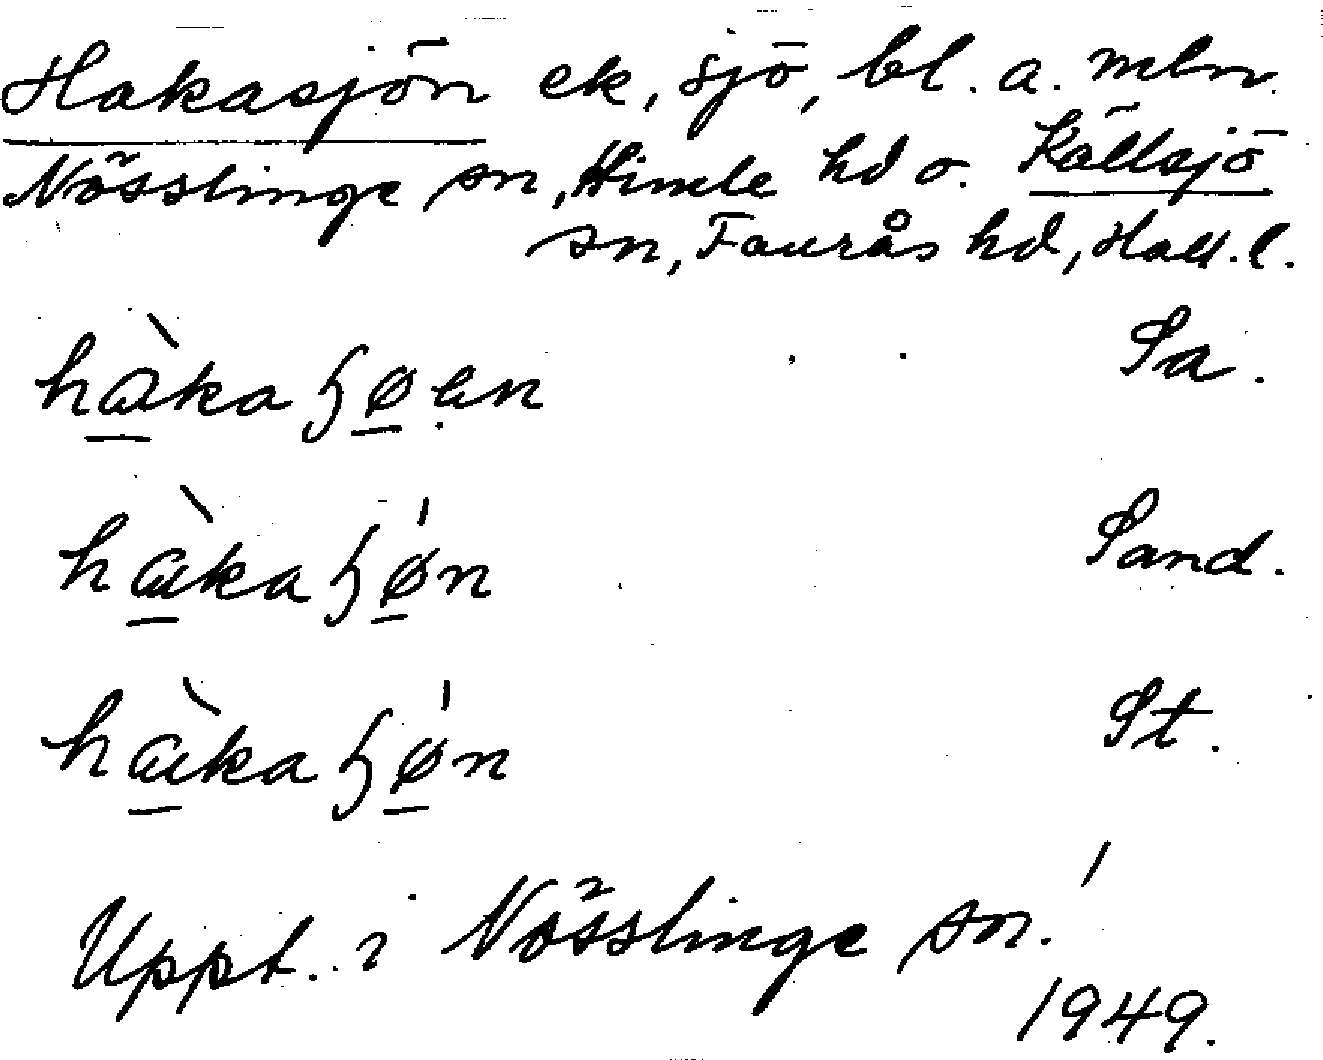 Hakasjön ek, sjö, bl. a. mln.
Nösslinge sn, Himle hd o. Källsjö
sn, Faurås hd, Hall. l.
hàkaɧøen Sa.
hàkaɧǿn Sand.
hàkaɧǿn St.
Uppt. i Nösslinge sn.
1949.